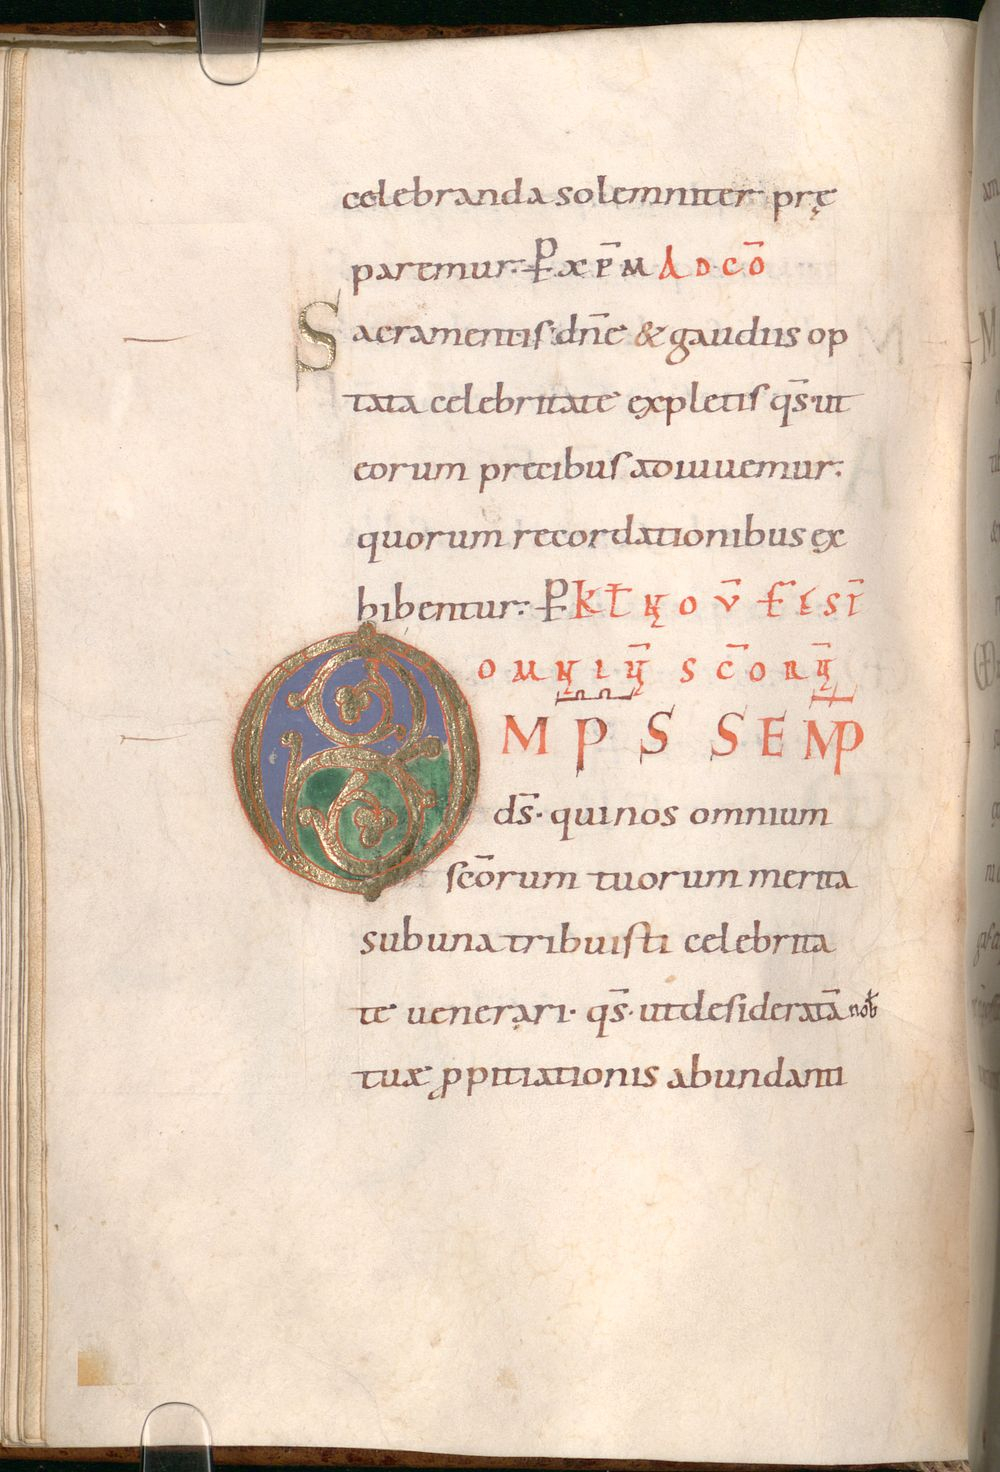 celebranda solemniter prę
paremur· P xp̄m AD CŌ
Sacramentis dn̄e & gaudiis op
tata celebritate expletis qs̄· ut
eorum precibus adiuuemur·
quorum recordationibus ex
hibentur· P kł Nov̄ F̄ESTĪ
OMNIŪ SC̄ORŪ
OMP̄S SEMP̄
ds̄· qui nos omnium
sc̄orum tuorum merita
sub una tribuisti celebrita
te uenerari· qs̄· ut desideratā nob̄
tuæ ꝓpitiationis abundanti